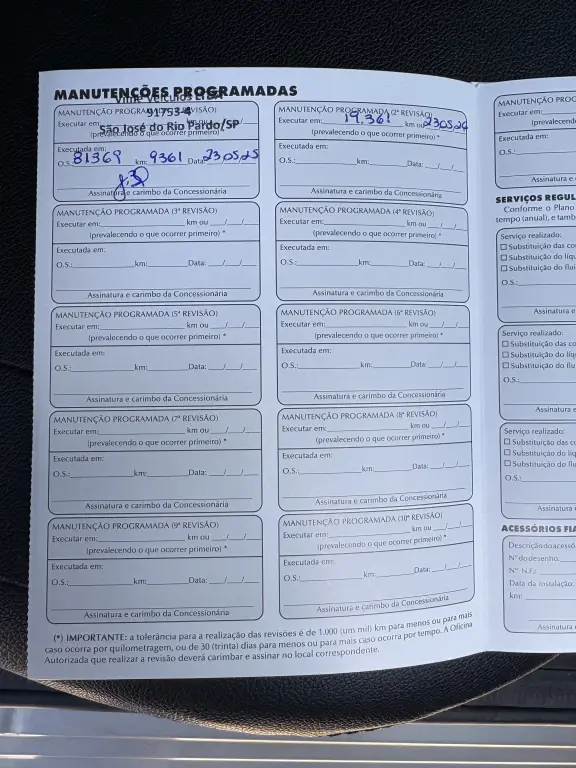 MANUTENÇÕES PROGRAMADAS
MANUTENÇÃO PROGRAMADA (1ª REVISÃO)
Vime Veículos Ltda
91753-4
Executar em: km ou
(prevalecendo o que ocorrer primeiro) *
São José do Rio Pardo/SP
Executada em:
O.S.: 81369 km: 9361 Data: 23 05 25
Assinatura e carimbo da Concessionária
MANUTENÇÃO PROGRAMADA (2ª REVISÃO)
Executar em: 19.361 km ou 23 05 26
(prevalecendo o que ocorrer primeiro) *
Executada em:
O.S.: km: Data: / /
Assinatura e carimbo da Concessionária
MANUTENÇÃO PROGRAMADA (3ª REVISÃO)
Executar em: km ou / /
(prevalecendo o que ocorrer primeiro) *
Executada em:
O.S.: km: Data: / /
Assinatura e carimbo da Concessionária
MANUTENÇÃO PROGRAMADA (4ª REVISÃO)
Executar em: km ou / /
(prevalecendo o que ocorrer primeiro) *
Executada em:
O.S.: km: Data: / /
Assinatura e carimbo da Concessionária
MANUTENÇÃO PROGRAMADA (5ª REVISÃO)
Executar em: km ou / /
(prevalecendo o que ocorrer primeiro) *
Executada em:
O.S.: km: Data: / /
Assinatura e carimbo da Concessionária
MANUTENÇÃO PROGRAMADA (6ª REVISÃO)
Executar em: km ou / /
(prevalecendo o que ocorrer primeiro) *
Executada em:
O.S.: km: Data: / /
Assinatura e carimbo da Concessionária
MANUTENÇÃO PROGRAMADA (7ª REVISÃO)
Executar em: km ou / /
(prevalecendo o que ocorrer primeiro) *
Executada em:
O.S.: km: Data: / /
Assinatura e carimbo da Concessionária
MANUTENÇÃO PROGRAMADA (8ª REVISÃO)
Executar em: km ou / /
(prevalecendo o que ocorrer primeiro) *
Executada em:
O.S.: km: Data: / /
Assinatura e carimbo da Concessionária
MANUTENÇÃO PROGRAMADA (9ª REVISÃO)
Executar em: km ou / /
(prevalecendo o que ocorrer primeiro) *
Executada em:
O.S.: km: Data: / /
Assinatura e carimbo da Concessionária
MANUTENÇÃO PROGRAMADA (10ª REVISÃO)
Executar em: km ou / /
(prevalecendo o que ocorrer primeiro) *
Executada em:
O.S.: km: Data: / /
Assinatura e carimbo da Concessionária
(*) IMPORTANTE: a tolerância para a realização das revisões é de 1.000 (um mil) km para menos ou para mais
caso ocorra por quilometragem, ou de 30 (trinta) dias para menos ou para mais caso ocorra por tempo. A Oficina
Autorizada que realizar a revisão deverá carimbar e assinar no local correspondente.
MANUTENÇÃO PROG
Executar em:
(prevalecend
Executada em:
O.S.:
Assinatura e
SERVIÇOS REGUL
Conforme o Plano
tempo (anual), e tamb
Serviço realizado:
Substituição das co
Substituição do líqu
Substituição do flui
O.S.:
Assinatura e
Serviço realizado:
Substituição das co
Substituição do líq
Substituição do flu
O.S.:
Assinatura e
Serviço realizado:
Substituição das c
Substituição do líq
Substituição do flu
O.S.:
Assinatura
ACESSÓRIOS FIA
Descrição do acessó
Nº do desenho:
Nº N.F.:
Data da instalação:
km:
Assinatura